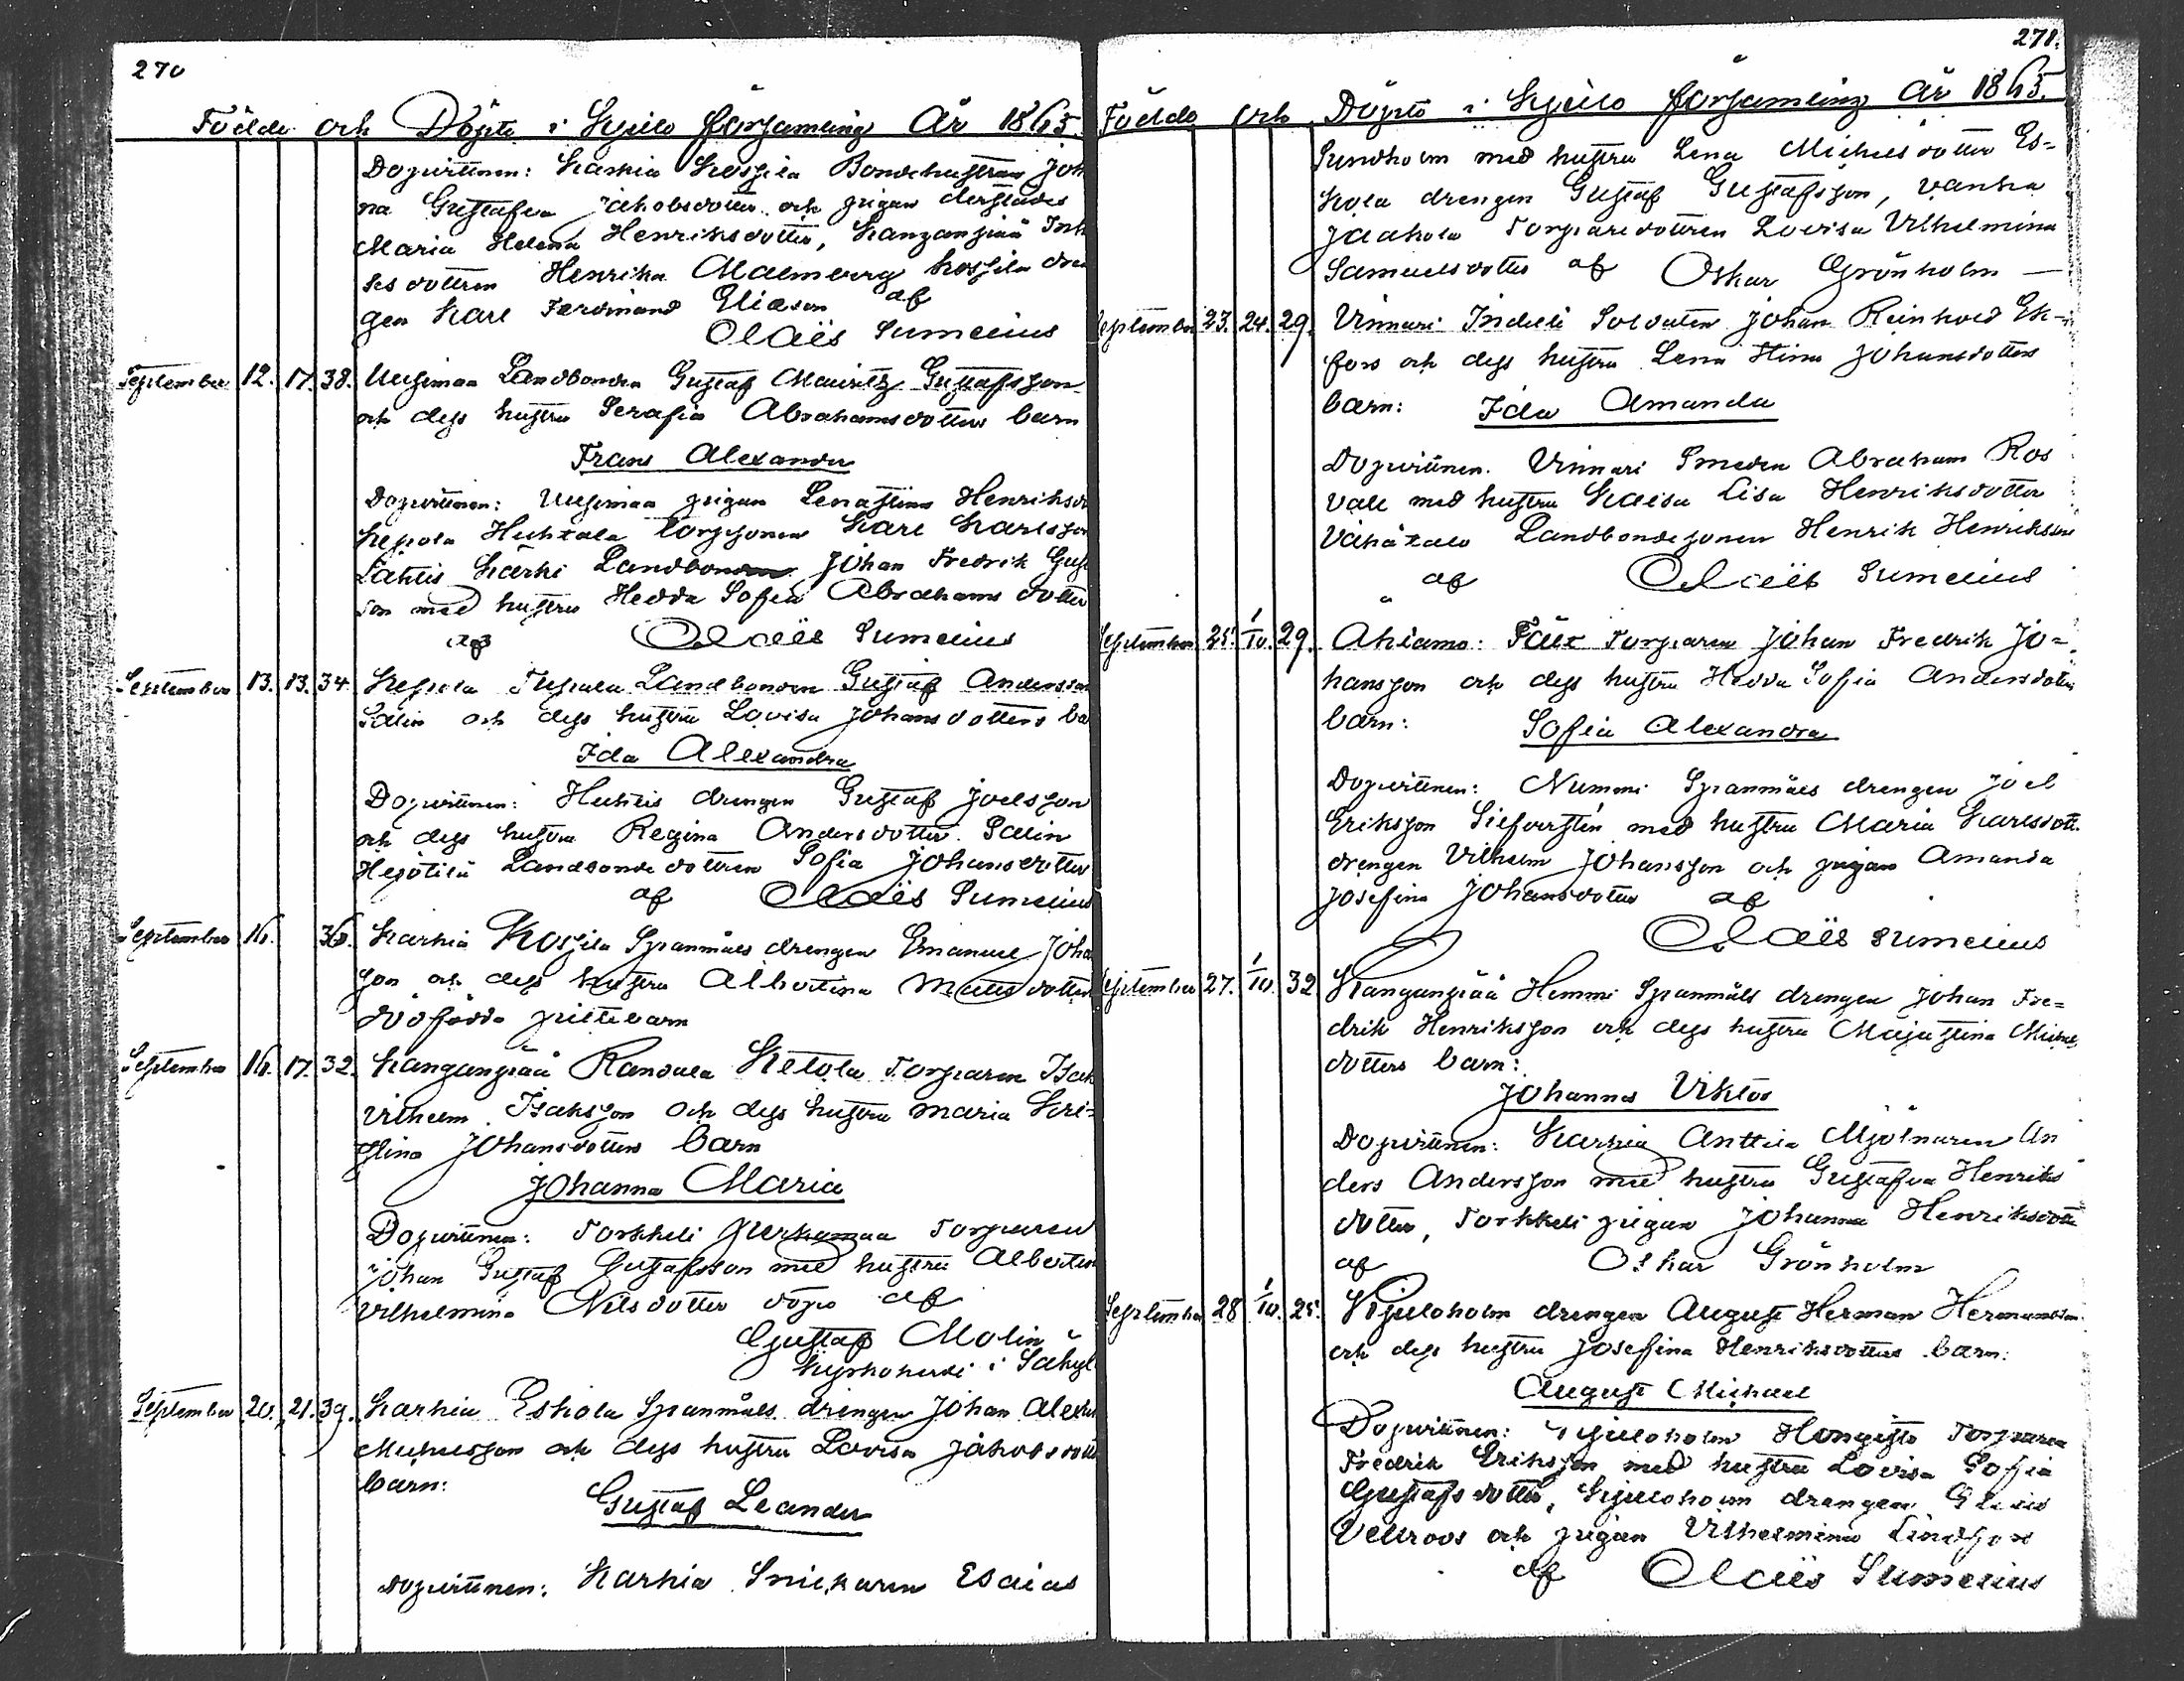 270
Födde och Döpte i Kjulo församling År 1865.
Dopvittnen: Karhia Kossila Bondehustrun Joh
na Gustafva Jakobsdotter och pigan derstädes
Maria Helena Henriksdotter, Kanganpää Inh
ses dottren Henrika Malmberg Kossila dren
gen Karl Ferdinand Eliasson af
Olaus Sumelius
September 12. 17. 38. Uusimaa Landbonden Gustaf Mauritz Gustafsson
och dess hustru Serafia Abrahamsdotters barn
Frans Alexander
Dopvittnen: Uusimaa pigan Lenastina Henriksd
Kepola Huhtala torpsonen Karl Karlsson
Lähtis Kärki Landbonden Johan Fredrik Gust
son med hustru Hedda Sofia Abrahams dotter
af Olaus Sumelius
September 13. 13. 34. Kepola Landbonden Gustaf Andersson
Salin och dess hustru Lovisa Johansdotters ba
Ida Alexandra
Dopvittnen: Huhtis drengen Gustaf Joelsson
och dess hustru Regina Andersdotter Salin
Landbonde dottren Sofia Johansdotter
af Olaus Sumelius
September 16. 36. Karhia Kossila Spanmåls drengen Emanuel Joha
son och dess hustru Albertina Matts dotters
dödfödda gossebarn
September 16. 17. 32. Kanganpää Randala Ketola Torparen Isak
Vilhelm Isaksson och dess hustru Maria Kri-
stina Johansdotters barn
Johanna Maria
Dopvittnen: Torkkeli Torparen
Johan Gustaf Gustafsson med hustru Albertin
Vilhelmina Nilsdotter döpt af
Gustaf Molin
Kyrkoherde i Säkyl
September 20. 21. 39. Karhia Eskola Spanmåls drengen Johan Alexan
Michelsson och dess hustru Lovisa Jakobsdott
barn:
Gustaf Leander
Dopvittnen: Karhia Snickaren Esaias
271.
Födde och Döpte i Kjulo församling År 1865.
Sundholm med hustru Lena Michelsdotter Es-
kola drengen Gustaf Gustafsson, Vanha
Jaakola Torparedottren Lovisa Vilhelmina
Samuelsdotter af Oskar Grönholm —
September 23. 24. 29. Vinnari Indeli Soldaten Johan Reinhold Ek-
fors och dess hustru Lena Stina Johansdotters
barn: Ida Amanda
Dopvittnen. Vinnari Smeden Abraham Ros
vall med hustru Kaisa Lisa Henriksdotter
Vähätalo Landbondesonen Henrik Henriksson
af Olaus Sumelius
September 25. 1/10. 29. Ahlamo: Torparen Johan Fredrik Jo-
hansson och dess hustru Hedda Sofia Andersdotters
barn: Sofia Alexandra
Dopvittnen: Nummi Spanmåls drengen Joel
Eriksson Siefversten med hustru Maria Karlsdott.
drengen Vilhelm Johansson och pigan Amanda
Josefina Johansdotter af
Olaus Sumelius
September 27. 1/10. 32. Kanganpää Hemmi Spanmåls drengen Johan Fre-
drik Henriksson och dess hustru Majastina Michels
dotters barn:
Johannes Viktor
Dopvittnen: Karhia Anttila Mjölnaren An
ders Andersson med hustru Gustafva Henriks
dotter, Torkkeli pigan Johanna Henriksdotter
af Oskar Grönholm
September 28 1/10. 25. Kjuloholm drengen August Herman Hermansson
och dess hustru Josefina Henriksdotters barn.
August Michael
Dopvittnen: Kjuloholm Hongisto Torparen
Fredrik Eriksson med hustru Lovisa Sofia
Gustafs dotter, Kjuloholm drengen
Vellroos och pigan Vilhelmina Lindfors
af Olaus Sumelius